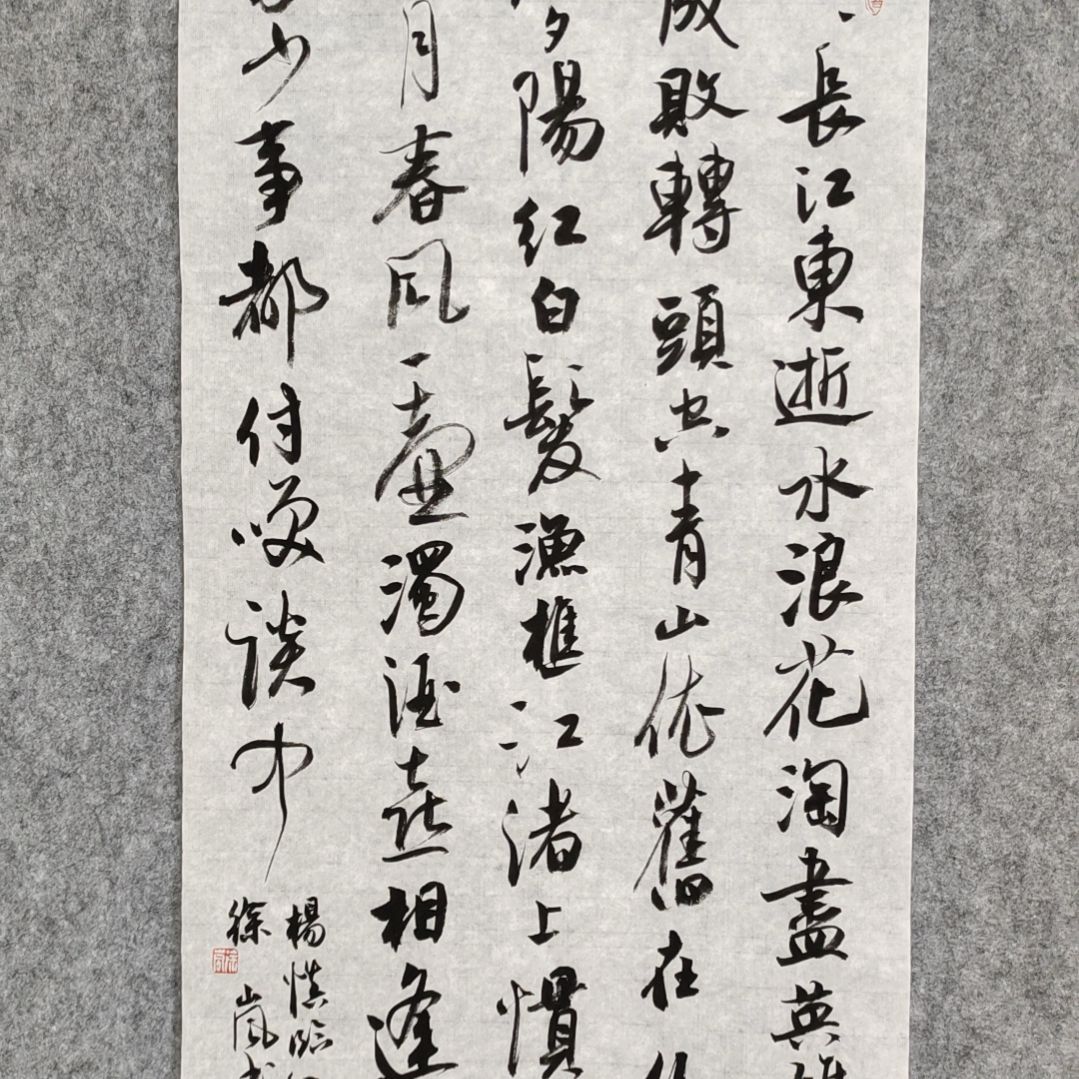 長江東逝水浪花淘盡英雄
成敗轉頭空青山依舊在
夕陽紅白髮漁樵江渚上慣
月春風一壺濁酒喜相逢
多少事都付咲談中
楊慎臨
徐嵐書